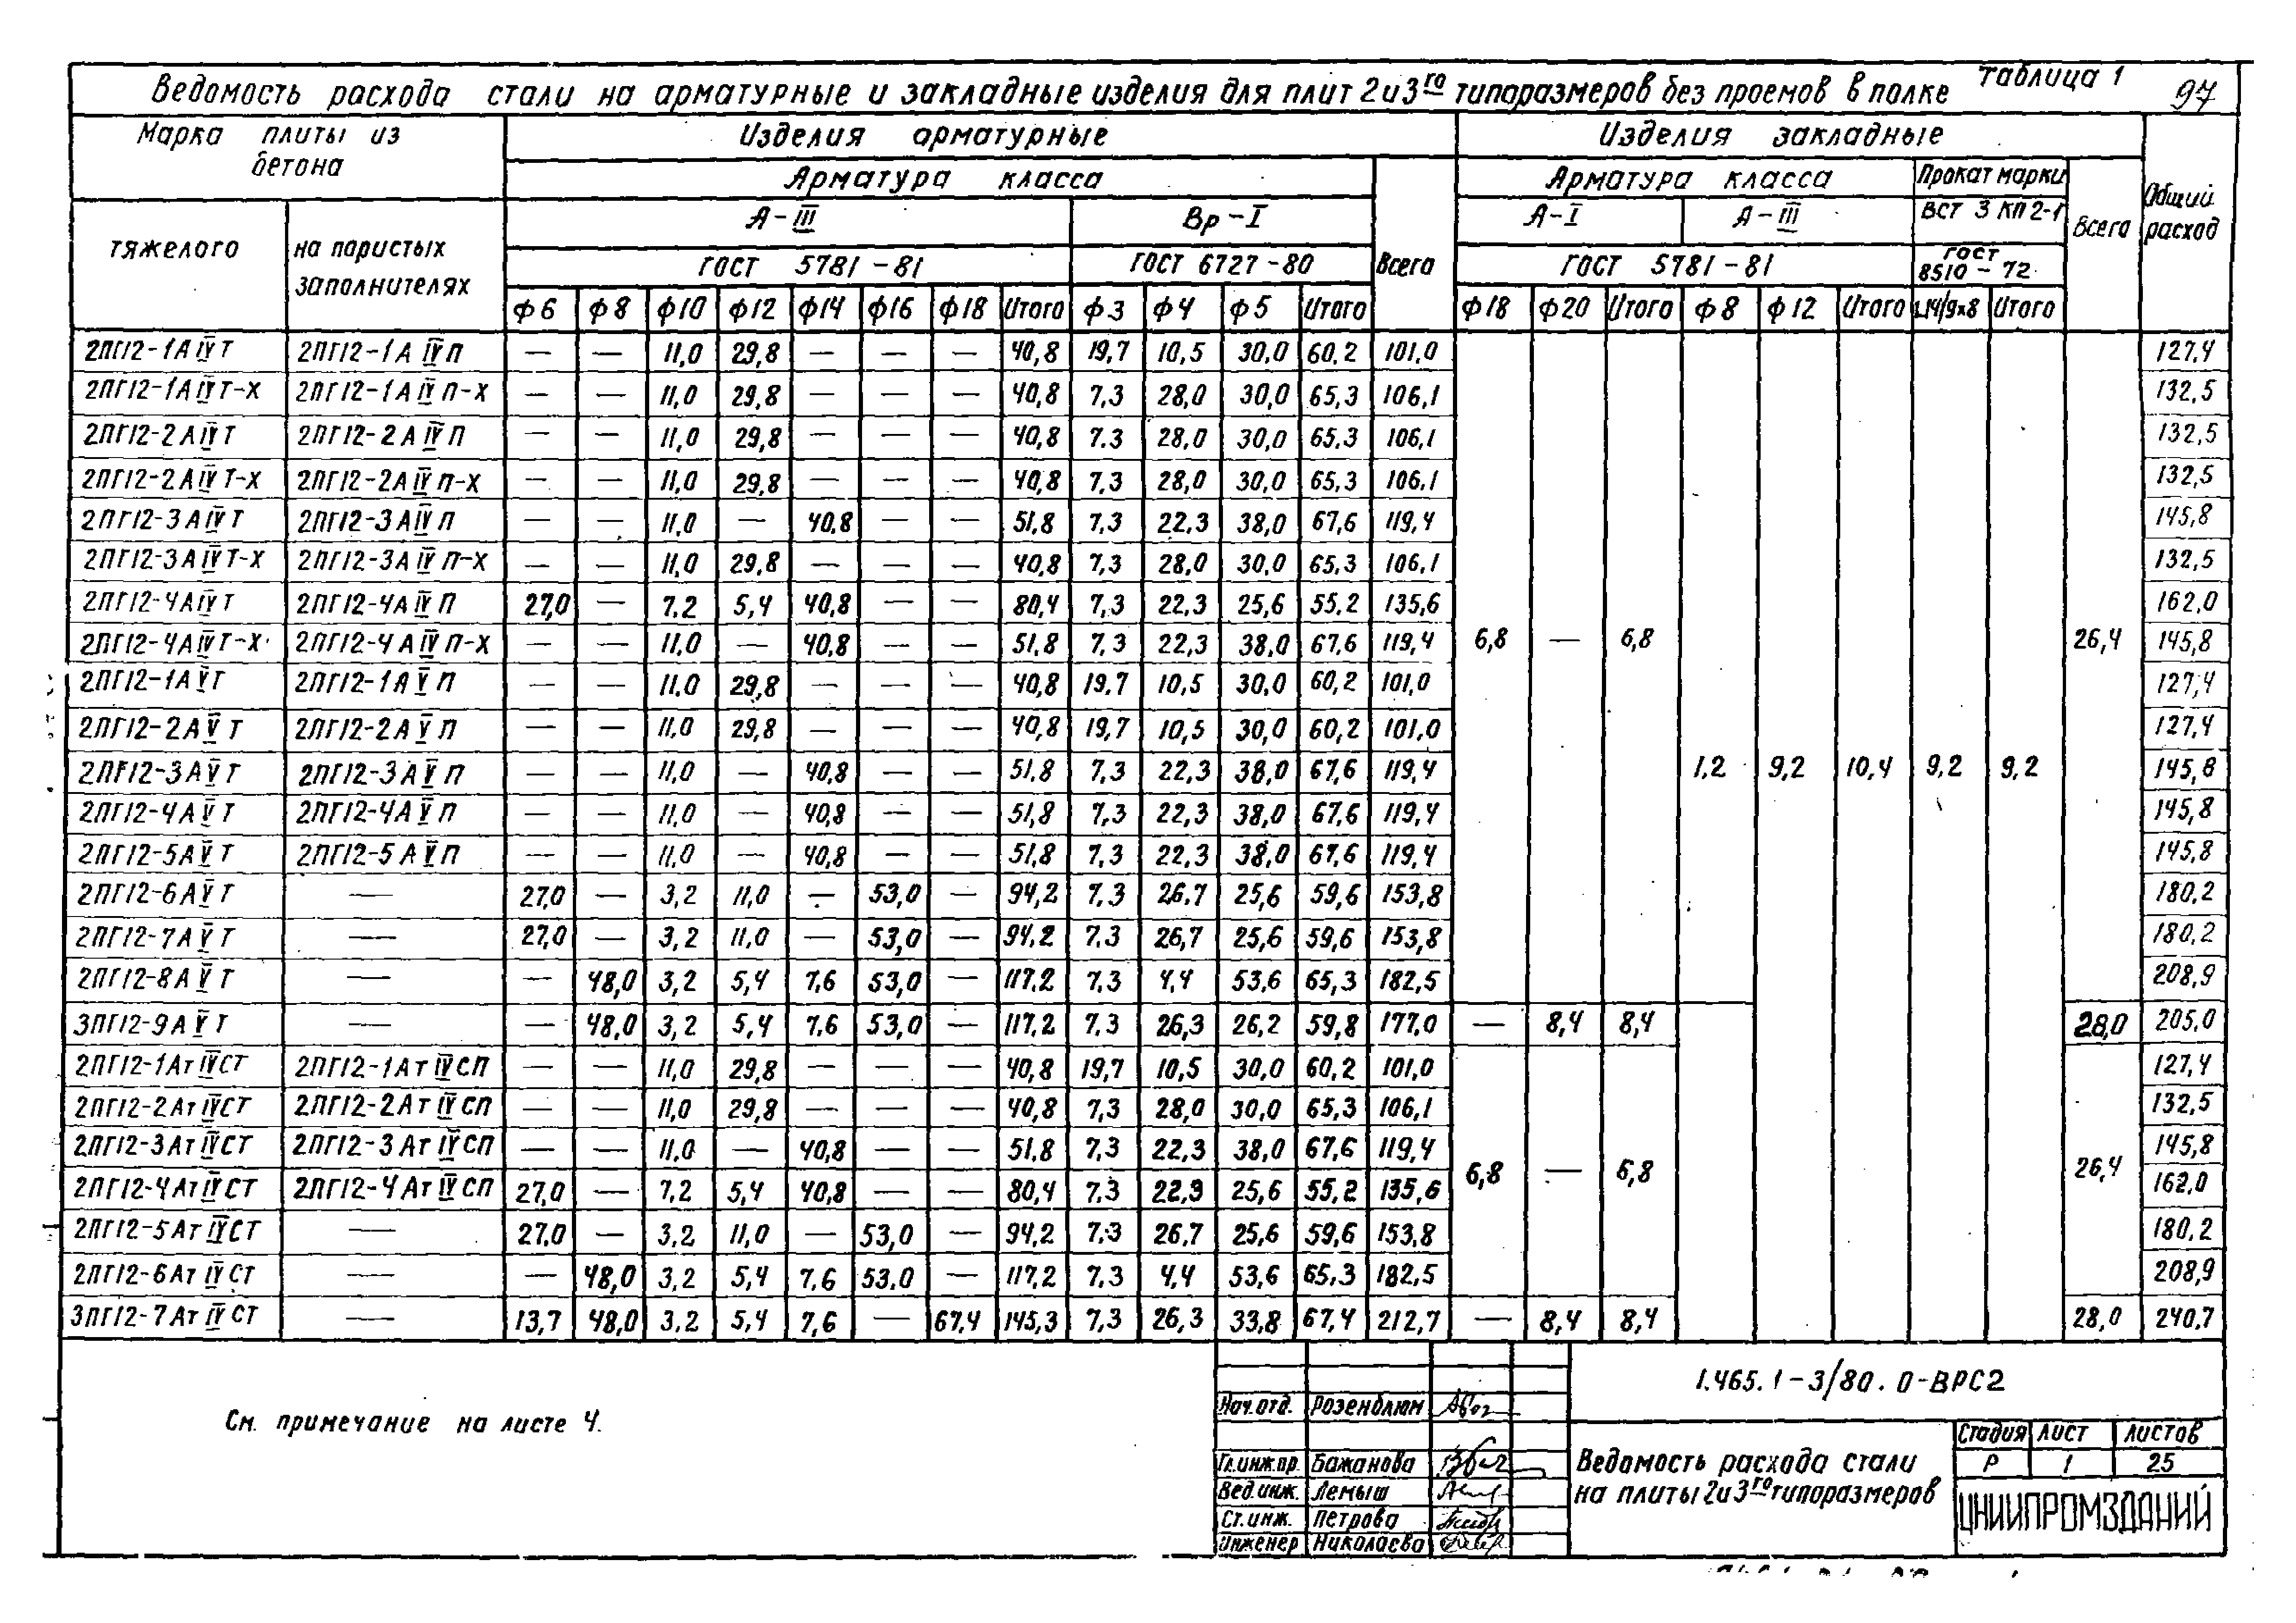 Ведомость расхода стали на арматурные и закладные изделия для плит 2 и 3го типоразмеров без проемов в полке Таблица 1 97
Марка плиты из бетона Изделия арматурные Изделия закладные Общий расход
Арматура класса Всего Арматура класса Прокат марки ВСт 3 кп 2-1 Всего
тяжелого на пористых заполнителях А-III Вр-I А-I А-III
ГОСТ 5781-81 ГОСТ 6727-80 ГОСТ 5781-81 ГОСТ 8510-72
ф6 ф8 ф10 ф12 ф14 ф16 ф18 Итого ф3 ф4 ф5 Итого ф18 ф20 Итого ф8 ф12 Итого L14/9х8 Итого
2ПГ12-1АIVТ 2ПГ12-1АIVП — — 11,0 29,8 — — — 40,8 19,7 10,5 30,0 60,2 101,0 127,4
2ПГ12-1АIVТ-Х 2ПГ12-1АIVП-Х — — 11,0 29,8 — — — 40,8 7,3 28,0 30,0 65,3 106,1 132,5
2ПГ12-2АIVТ 2ПГ12-2АIVП — — 11,0 29,8 — — — 40,8 7.3 28,0 30,0 65,3 106,1 132,5
2ПГ12-2АIVТ-Х 2ПГ12-2АIVП-Х — — 11,0 29,8 — — — 40,8 7,3 28,0 30,0 65,3 106,1 132,5
2ПГ12-3АIVТ 2ПГ12-3АIVП — — 11,0 — 40,8 — — 51,8 7,3 22,3 38,0 67,6 119,4 145,8
2ПГ12-3АIVТ-Х 2ПГ12-3АIVП-Х — — 11,0 29,8 — — — 40,8 7,3 28,0 30,0 65,3 106,1 132,5
2ПГ12-4АIVТ 2ПГ12-4АIVП 27,0 — 7,2 5,4 40,8 — — 80,4 7,3 22,3 25,6 55,2 135,6 162,0
2ПГ12-4АIVТ-Х 2ПГ12-4АIVП-Х — — 11,0 — 40,8 — — 51,8 7,3 22,3 38,0 67,6 119,4 6,8 — 6,8 26,4 145,8
2ПГ12-1АVТ 2ПГ12-1АVП — — 11,0 29,8 — — — 40,8 19,7 10,5 30,0 60,2 101,0 127,4
2ПГ12-2АVТ 2ПГ12-2АVП — — 11,0 29,8 — — — 40,8 19,7 10,5 30,0 60,2 101,0 127,4
2ПГ12-3АVТ 2ПГ12-3АVП — — 11,0 — 40,8 — — 51,8 7,3 22,3 38,0 67,6 119,4 1,2 9,2 10,4 9,2 9,2 145,8
2ПГ12-4АVТ 2ПГ12-4АVП — — 11,0 — 40,8 — — 51,8 7,3 22,3 38,0 67,6 119,4 145,8
2ПГ12-5АVТ 2ПГ12-5АVП — — 11,0 — 40,8 — — 51,8 7,3 22,3 38,0 67,6 119,4 145,8
2ПГ12-6АVТ — 27,0 — 3,2 11,0 — 53,0 — 94,2 7,3 26,7 25,6 59,6 153,8 180,2
2ПГ12-7АVТ — 27,0 — 3,2 11,0 — 53,0 — 94,2 7,3 26,7 25,6 59,6 153,8 180,2
2ПГ12-8АVТ — — 48,0 3,2 5,4 7,6 53,0 — 117,2 7,3 4,4 53,6 65,3 182,5 208,9
3ПГ12-9АVТ — — 48,0 3,2 5,4 7,6 53,0 — 117,2 7,3 26,3 26,2 59,8 177,0 — 8,4 8,4 28,0 205,0
2ПГ12-1АтIVСТ 2ПГ12-1АтIVСП — — 11,0 29,8 — — — 40,8 19,7 10,5 30,0 60,2 101,0 127,4
2ПГ12-2АтIVСТ 2ПГ12-2АтIVСП — — 11,0 29,8 — — — 40,8 7,3 28,0 30,0 65,3 106,1 132,5
2ПГ12-3АтIVСТ 2ПГ12-3АтIVСП — — 11,0 — 40,8 — — 51,8 7,3 22,3 38,0 67,6 119,4 145,8
2ПГ12-4АтIVСТ 2ПГ12-4АтIVСП 27,0 — 7,2 5,4 40,8 — — 80,4 7,3 22,3 25,6 55,2 135,6 6,8 — 6,8 26,4 162,0
2ПГ12-5АтIVСТ — 27,0 — 3,2 11,0 — 53,0 — 94,2 7,3 26,7 25,6 59,6 153,8 180,2
2ПГ12-6АтIVСТ — — 48,0 3,2 5,4 7,6 53,0 — 117,2 7,3 4,4 53,6 65,3 182,5 208,9
3ПГ12-7АтIVСТ — 13,7 48,0 3,2 5,4 7,6 — 67,4 145,3 7,3 26,3 33,8 67,4 212,7 — 8,4 8,4 28,0 240,7
См. примечание на листе 4.
1.465.1-3/80.0-ВРС2
Нач.отд. Розенблюм
Гл.инж.пр. Бажанова
Вед.инж. Лемыш
Ст.инж. Петрова
Инженер Николаева
Ведомость расхода стали
на плиты 2 и 3го типоразмеров
Стадия Лист Листов
Р 1 25
ЦНИИПРОМЗДАНИЙ